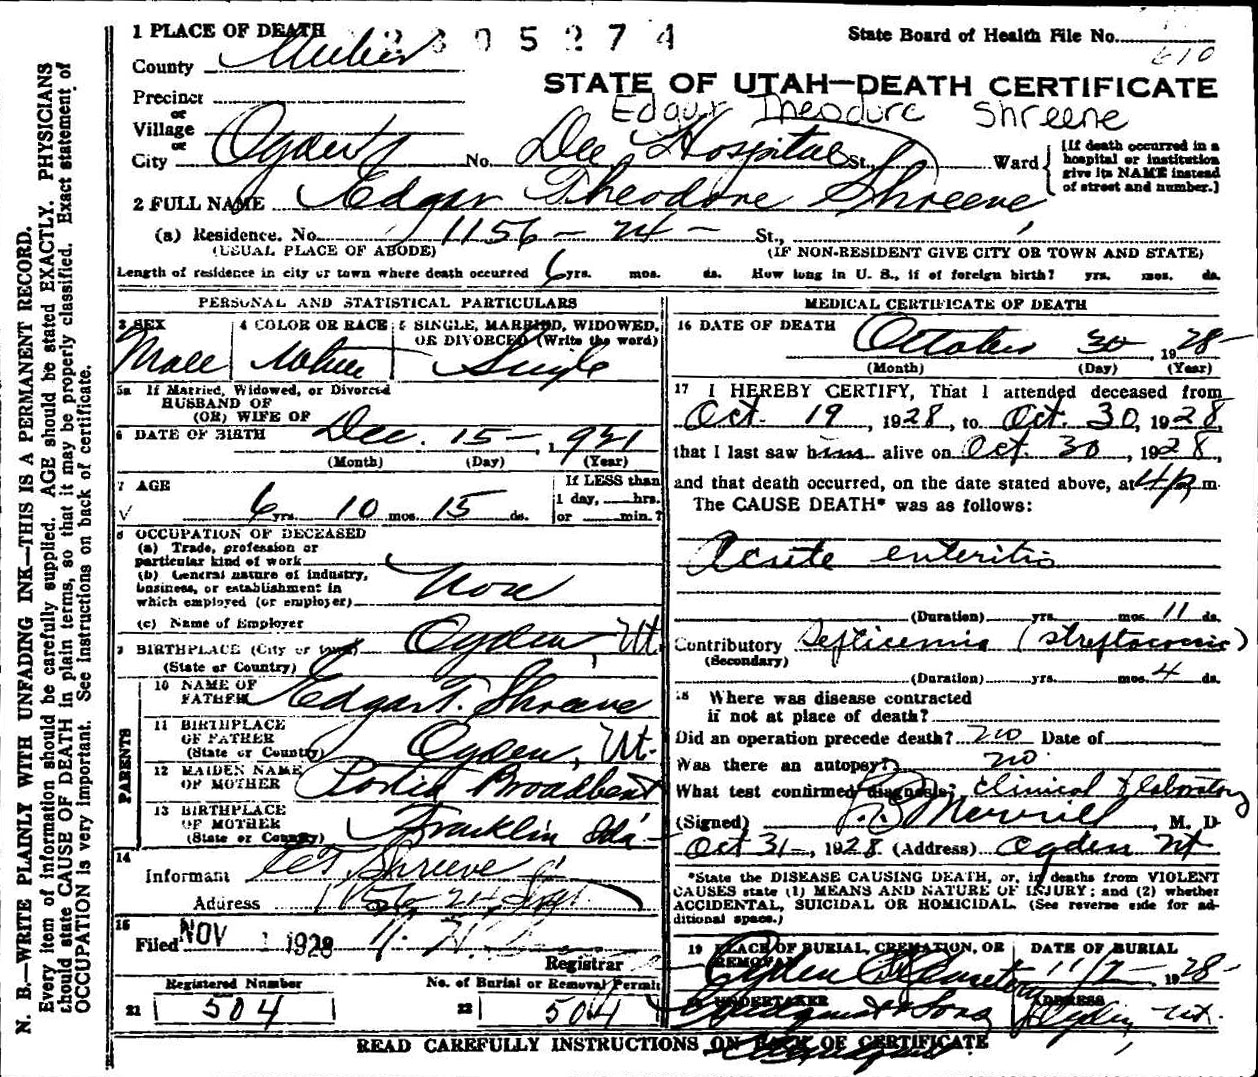 1 PLACE OF DEATH 2805274
State Board of Health File No. 610
County Weber
STATE OF UTAH—DEATH CERTIFICATE
Precinct
Edgar Theodore Shreeve
or
Village
or
City Ogden No. Dee Hospital St., Ward
(If death occurred in a hospital or institution give its NAME instead of street and number.)
2 FULL NAME Edgar Theodore Shreeve
(a) Residence. No. 1156 - 24 - St.,
(USUAL PLACE OF ABODE) (IF NON-RESIDENT GIVE CITY OR TOWN AND STATE)
Length of residence in city or town where death occurred 6 yrs. mos. ds. How long in U. S., if of foreign birth? yrs. mos. ds.
PERSONAL AND STATISTICAL PARTICULARS
3 SEX
Male
4 COLOR OR RACE
White
5 SINGLE, MARRIED, WIDOWED,
OR DIVORCED (Write the word)
Single
5a If Married, Widowed, or Divorced
HUSBAND OF
(OR) WIFE OF
6 DATE OF BIRTH Dec. 15 - , 1921
(Month) (Day) (Year)
7 AGE
6 yrs. 10 mos. 15 ds.
If LESS than
1 day, hrs.
or min.?
8 OCCUPATION OF DECEASED
(a) Trade, profession or
particular kind of work
(b) General nature of industry,
business, or establishment in
which employed (or employer)
None
(c) Name of Employer
9 BIRTHPLACE (City or town) Ogden, Ut.
(State or Country)
PARENTS
10 NAME OF
FATHER Edgar T. Shreeve
11 BIRTHPLACE
OF FATHER
(State or Country) Ogden, Ut.
12 MAIDEN NAME
OF MOTHER Portia Broadbent
13 BIRTHPLACE
OF MOTHER
(State or Country) Franklin Ida -
14
Informant E T Shreeve
Address 1156 24
15
Filed NOV 1 1928
Registrar
Registered Number
21 504
No. of Burial or Removal Permit
22 504
MEDICAL CERTIFICATE OF DEATH
16 DATE OF DEATH October 30 , 1928 -
(Month) (Day) (Year)
17 I HEREBY CERTIFY, That I attended deceased from
Oct. 19, 1928, to Oct. 30, 1928,
that I last saw him alive on Oct. 30, 1928,
and that death occurred, on the date stated above, at 4 P m.
The CAUSE DEATH* was as follows:
Acute enteritis
(Duration) yrs. mos. 11 ds.
Contributory Septicemia (streptococcic)
(Secondary)
(Duration) yrs. mos. 4 ds.
18 Where was disease contracted
if not at place of death?
Did an operation precede death? no Date of
Was there an autopsy? no
What test confirmed diagnosis? Clinical & laboratory
(Signed) Merrill, M. D
Oct 31 - , 1928 (Address) Ogden Ut
*State the DISEASE CAUSING DEATH, or, in deaths from VIOLENT
CAUSES state (1) MEANS AND NATURE OF INJURY; and (2) whether
ACCIDENTAL, SUICIDAL OR HOMICIDAL. (See reverse side for ad-
ditional space.)
19 PLACE OF BURIAL, CREMATION, OR
REMOVAL
Ogden Cemetery
DATE OF BURIAL
11/2 - 1928 -
20 UNDERTAKER
& Sons
ADDRESS
Ogden, Ut.
READ CAREFULLY INSTRUCTIONS ON BACK OF CERTIFICATE
N. B.—WRITE PLAINLY WITH UNFADING INK—THIS IS A PERMANENT RECORD.
Every item of information should be carefully supplied. AGE should be stated EXACTLY. PHYSICIANS
should state CAUSE OF DEATH in plain terms, so that it may be properly classified. Exact statement of
OCCUPATION is very important. See instructions on back of certificate.